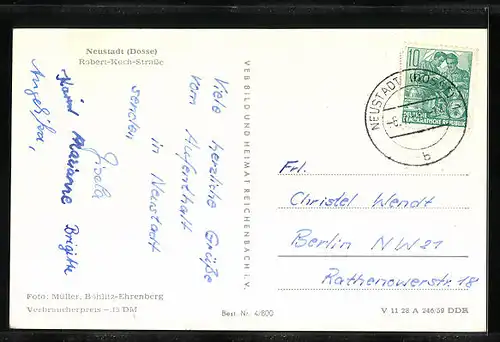 Neustadt (Dosse)
Robert-Koch-Straße
Viele herzliche Grüße
vom Aufenthalt
in Neustadt
senden
Gisela
Marianne Brigitte
Angelika,
VEB BILD UND HEIMAT REICHENBACH I. V.
10
DEUTSCHE
DEMOKRATISCHE REPUBLIK
NEUSTADT (DOSSE)
b
Frl.
Christel Wendt
Berlin NW21
Rathenowerstr. 18
Foto: Müller, Böhlitz-Ehrenberg
Verbraucherpreis – 12 DM
Best. Nr. 4/600
V 11 28 A 246/59 DDR